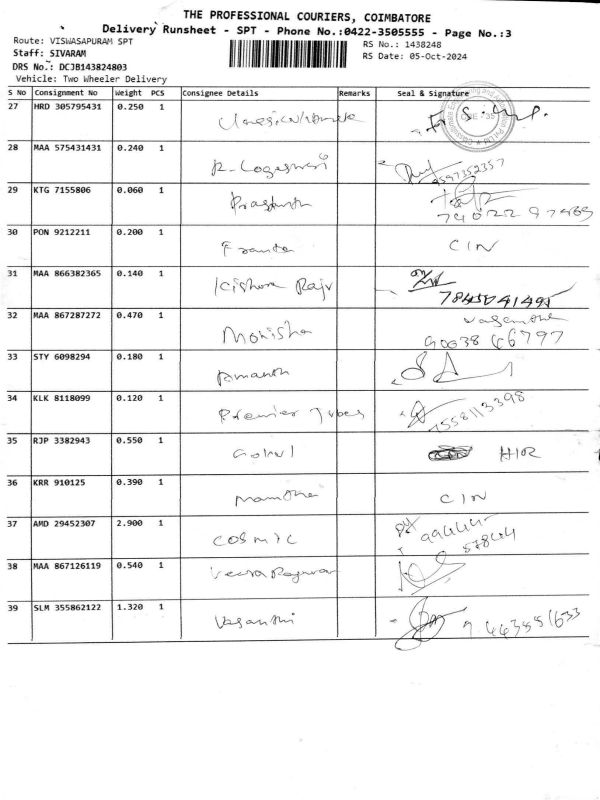 THE PROFESSIONAL COURIERS, COIMBATORE
Delivery Runsheet - SPT - Phone No.:0422-3505555 - Page No.:3
Route: VISWASAPURAM SPT RS No.: 1438248
Staff: SIVARAM RS Date: 05-Oct-2024
DRS No.: DCJB143824803
Vehicle: Two Wheeler Delivery
S No Consignment No Weight PCS Consignee Details Remarks Seal & Signature
27 HRD 305795431 0.250 1
28 MAA 575431431 0.240 1 R. Logeswari 9597352357
29 KTG 7155806 0.060 1 Prasanth
30 PON 9212211 0.200 1 CIN
31 MAA 866382365 0.140 1 Kishore Raju 7845041495
32 MAA 867287272 0.470 1 Monisha Vasantha 9003846797
33 STY 6098294 0.180 1
34 KLK 8118099 0.120 1 Premier Tubes 7558113398
35 RJP 3382943 0.550 1 Gokul H/R
36 KRR 910125 0.390 1 Mamtha CIN
37 AMD 29452307 2.900 1 COSMIC 99444-
57844
38 MAA 867126119 0.540 1 Veera Ragavan
39 SLM 355862122 1.320 1 Vasanthi